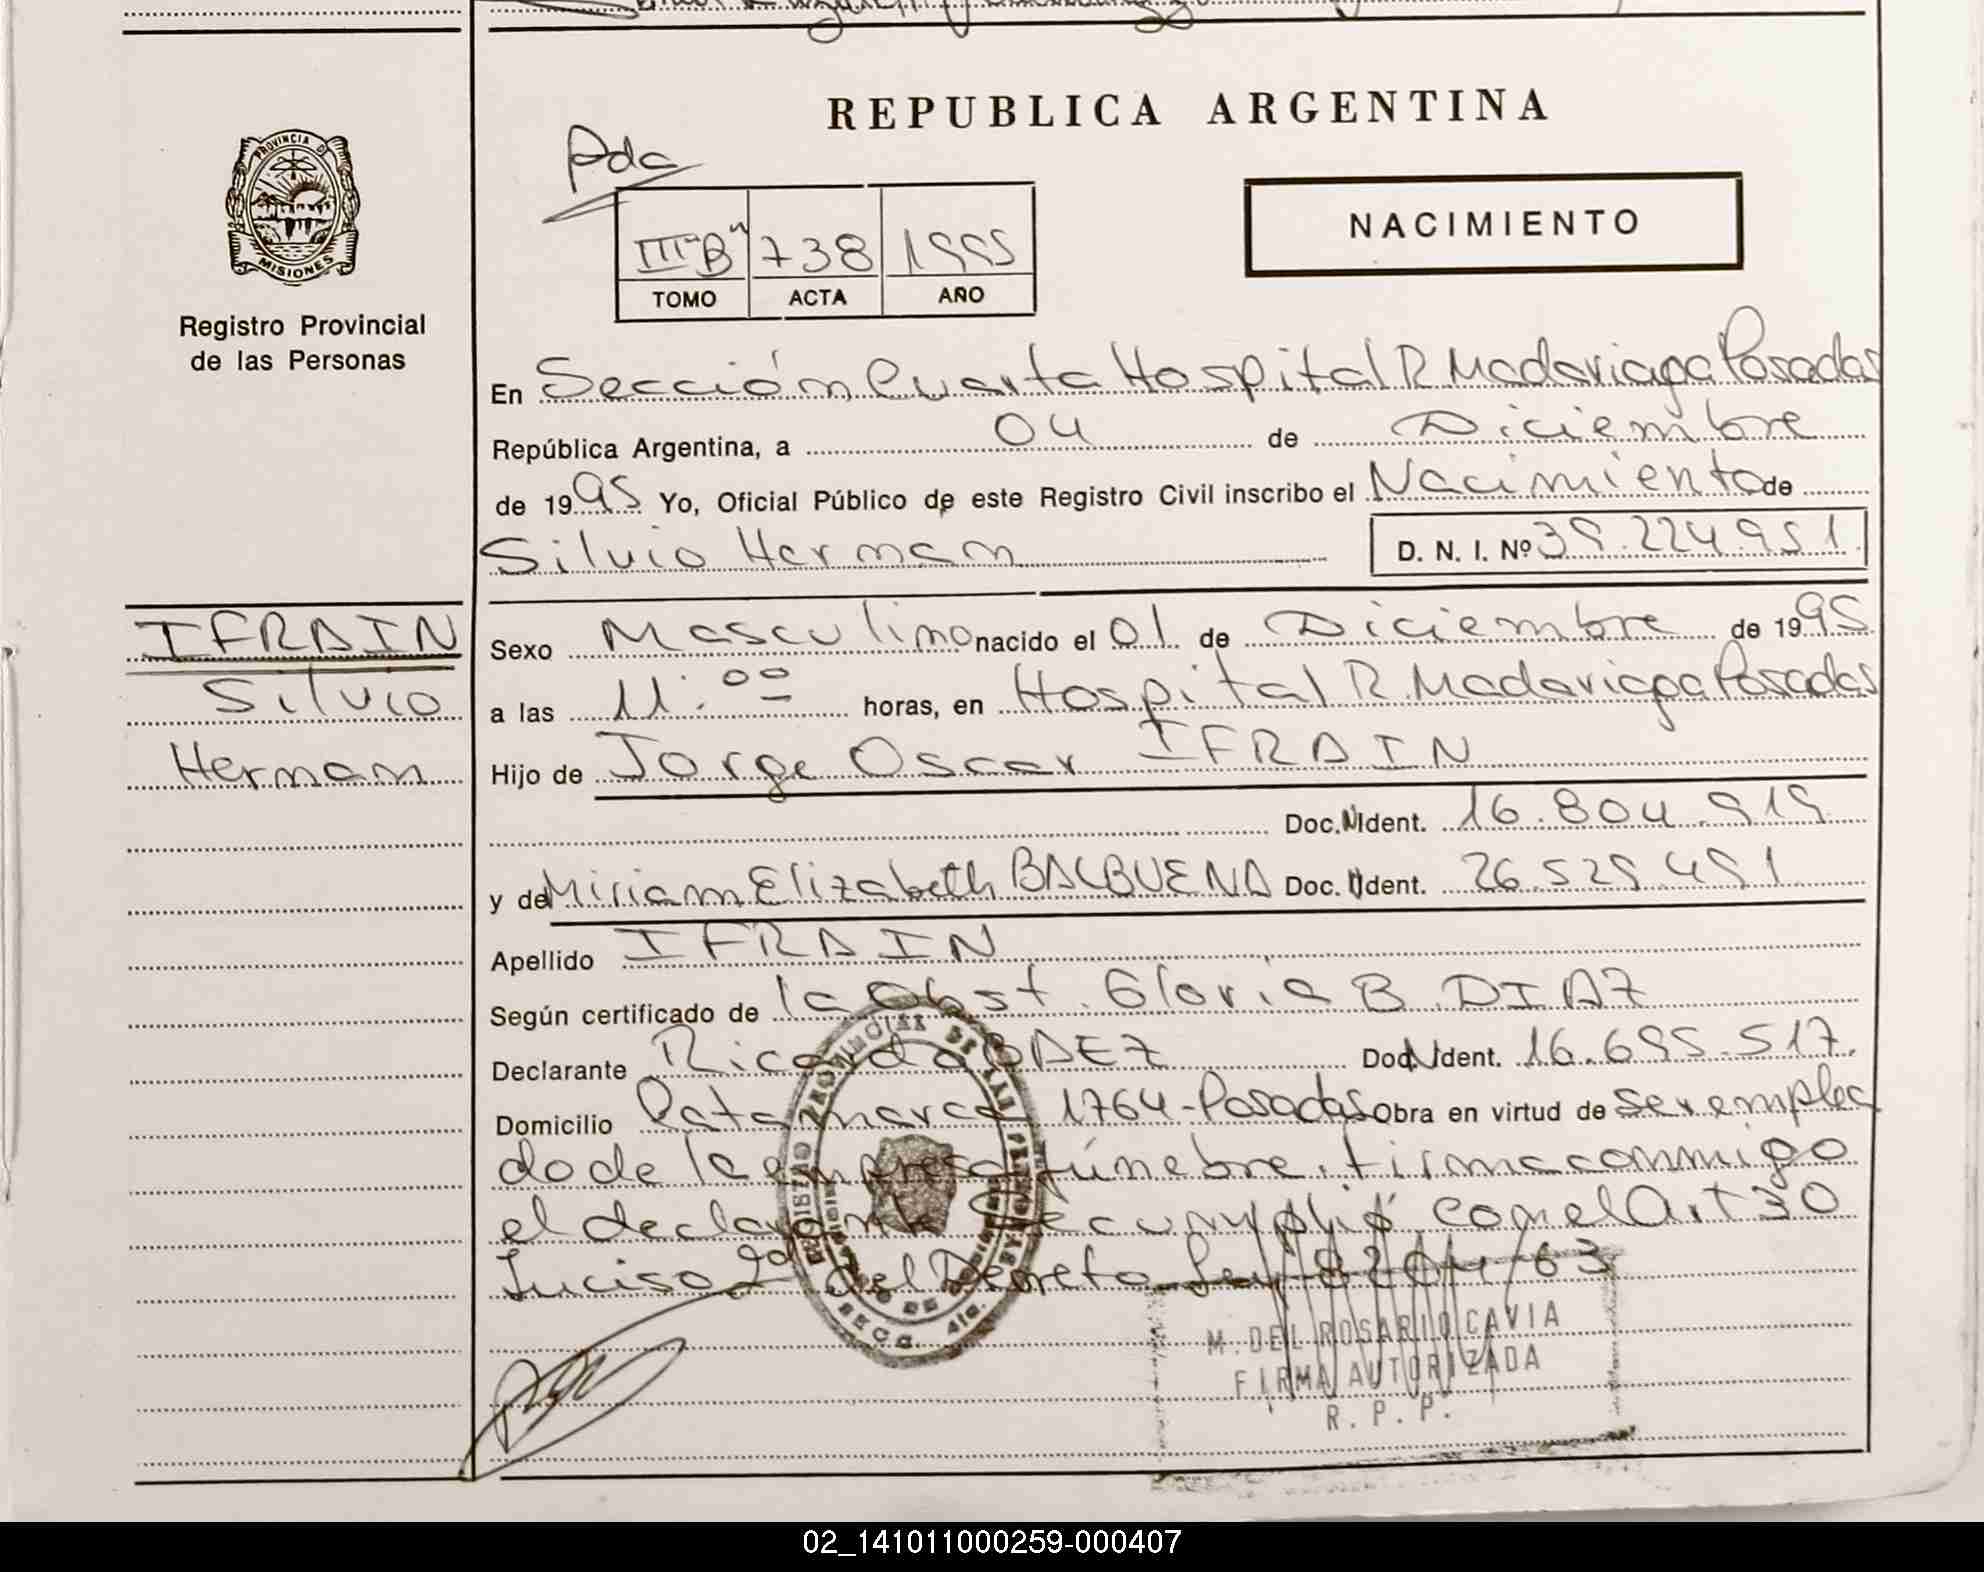 REPUBLICA ARGENTINA
Pda
PROVINCIA D
MISIONES
Registro Provincial
de las Personas
III "B" 738 1995
TOMO ACTA AÑO
NACIMIENTO
En Sección Cuarta Hospital R. Madariaga Posadas
República Argentina, a 04 de Diciembre
de 1995 Yo, Oficial Público de este Registro Civil inscribo el Nacimiento de
Silvio Hernan
D. N. I. Nº 39.224.951.
IFRAIN
Silvio
Hernan
Sexo Masculino nacido el 01 de Diciembre de 1995
a las 11:00 horas, en Hospital R. Madariaga Posadas
Hijo de Jorge Oscar IFRAIN
Doc. N Ident. 16.804.919
y de Miriam Elizabeth BALBUENA Doc. N Ident. 26.529.491
Apellido IFRAIN
Según certificado de la Obst. Gloria B. DIAZ
Declarante Ricardo BAEZ Doc. N Ident. 16.695.517.
Domicilio Catamarca 1764-Posadas Obra en virtud de ser emplea
do de la empresa fúnebre. Firma conmigo
el declarante Se cumplió con el Art 30
Inciso 2º del Decreto Ley 8204/63
REGISTRO PROVINCIAL DE LAS PERSONAS
SECC. 4ta.
M. DEL ROSARIO CAVIA
FIRMA AUTORIZADA
R. P. P.
02_141011000259-000407